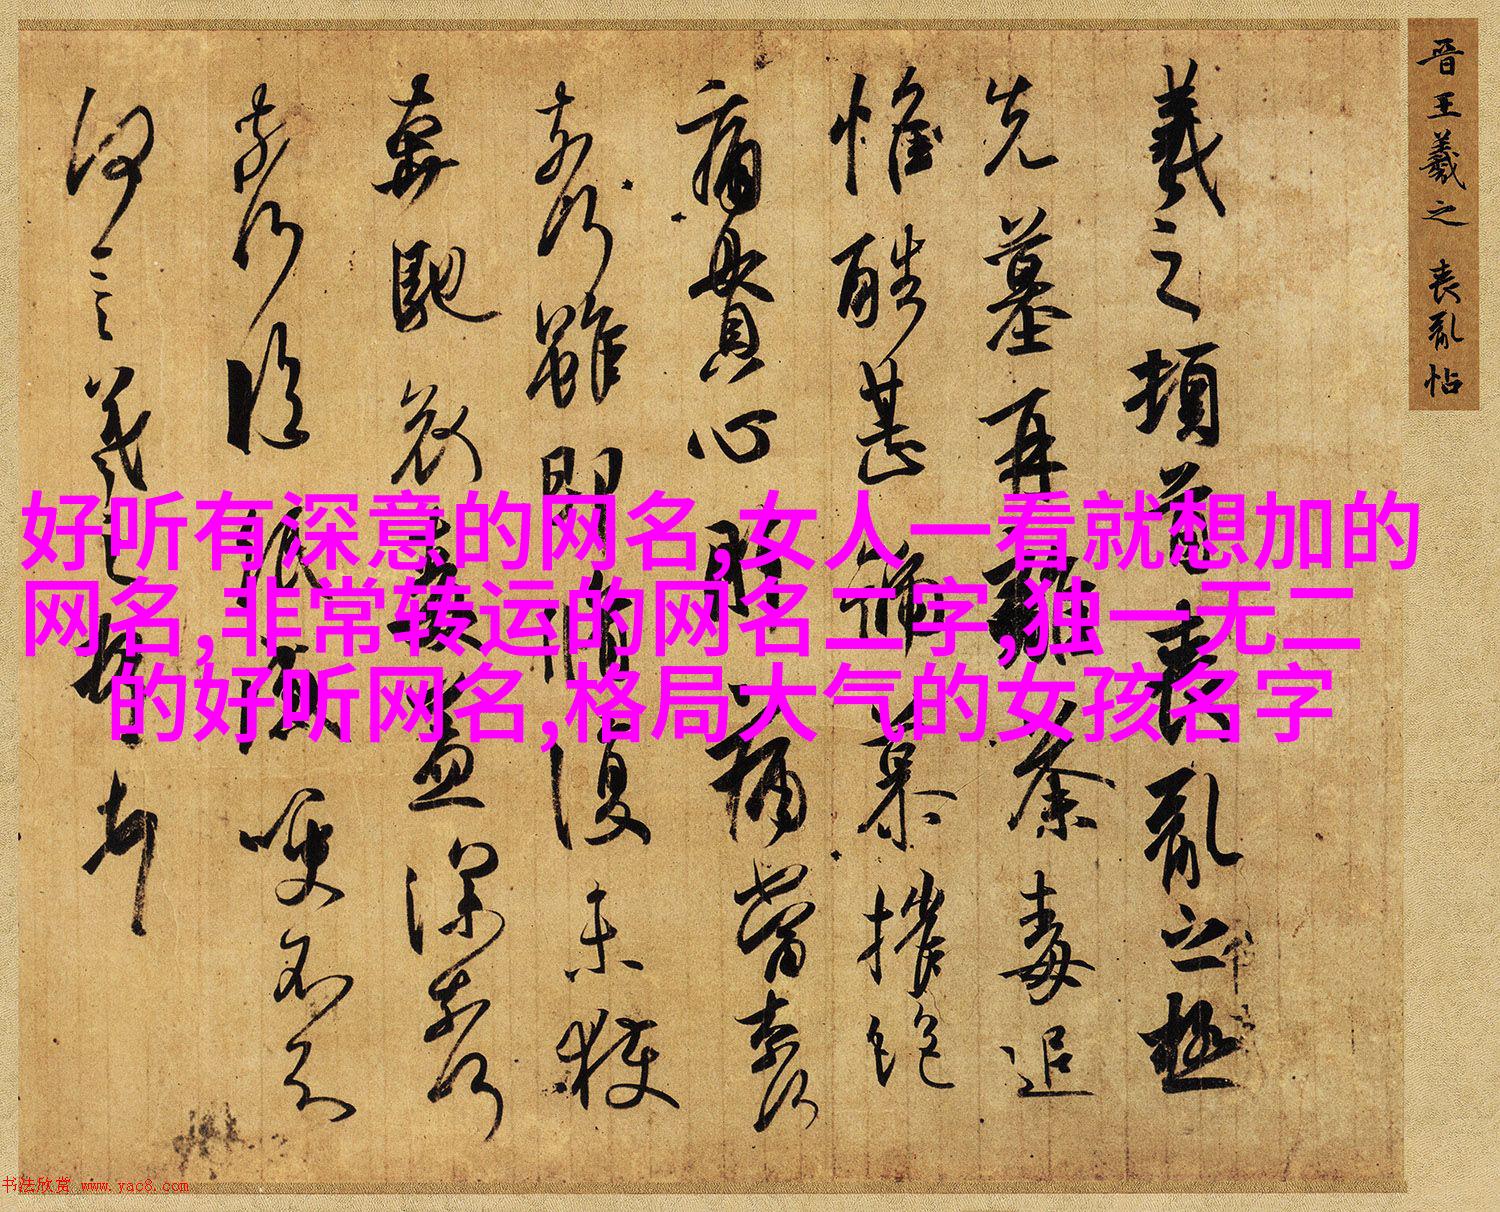 晋王羲之 喪亂帖
羲之頓首喪亂之極
先墓再離荼毒追
惟酷甚號慕摧絕
痛貫心肝痛當奈何
奈何雖即脩復未獲
奔馳哀毒益深奈何
奈何臨紙感哽不知
何言羲之頓首
好听有深意的网名,女人一看就想加的
网名,非常转运的网名二字,独一无二
的好听网名,格局大气的女孩名字
书法欣赏 www.yac8.com